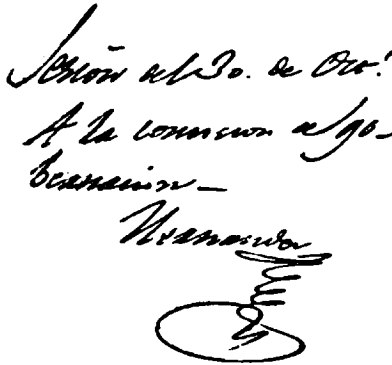 Sesion del 30. de Oct.e
A la comision de go-
bernacion—
Hernandez